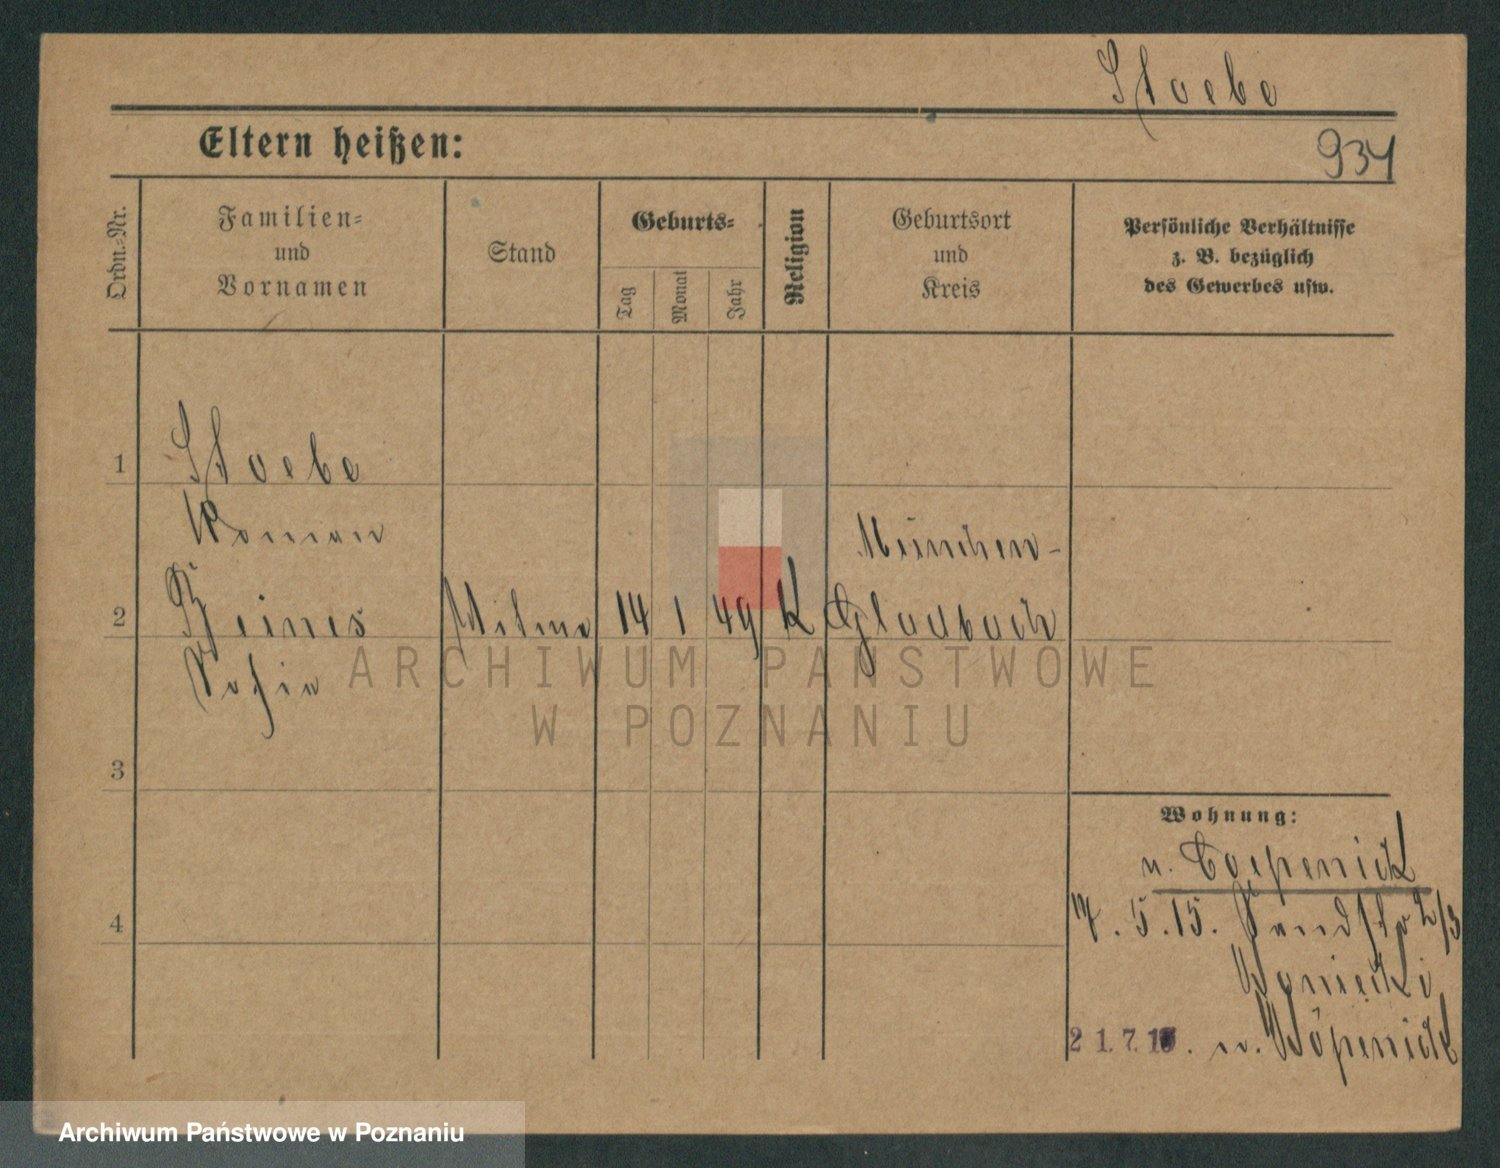 Stoebe
Eltern heißen:
934
Ordn.-Nr.
Familien-
und
Vornamen
Stand
Geburts-
Tag
Monat
Jahr
Religion
Geburtsort
und
Kreis
Persönliche Verhältnisse
z. B. bezüglich
des Gewerbes usw.
1
Stoebe
Roman
München-
2
Beines Witwe 14 1 49 K Gladbach
Sofie
ARCHIWUM PAŃSTWOWE
W POZNANIU
3
Wohnung:
n. Coepenick
4
17.5.15. 2/3
21.7.15. n. Köpenick
Archiwum Państwowe w Poznaniu